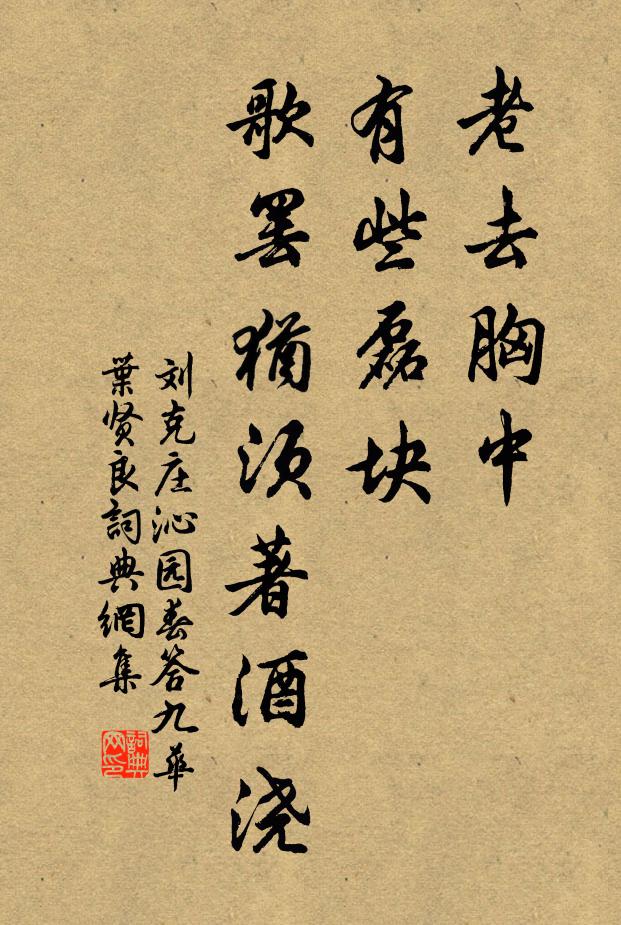 老去胸中
有些磊块
歌罢猶须著酒浇
刘克庄沁园春答九華
葉贤良詞典網集
詞典网印